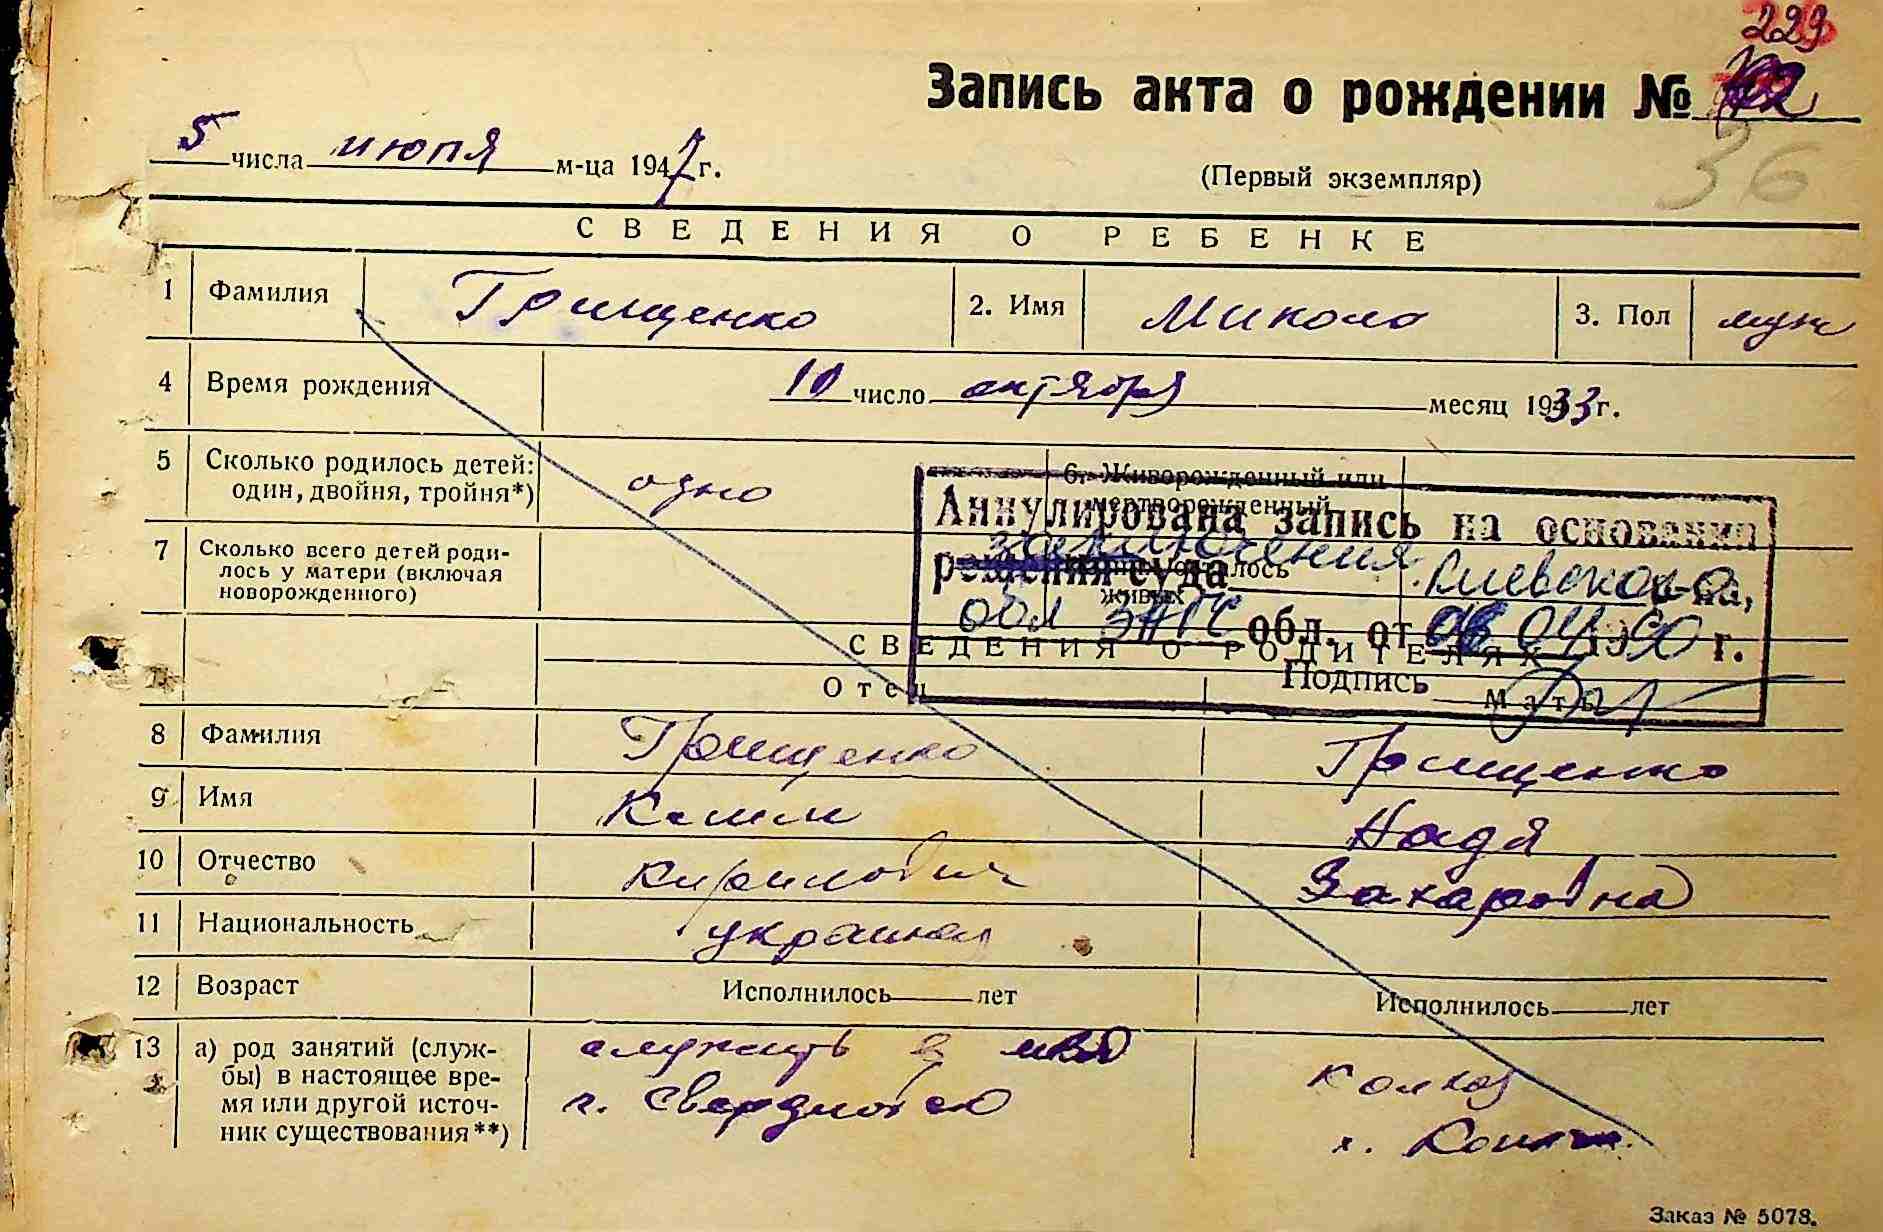 229
Запись акта о рождении №
5 числа июня м-ца 1947 г.
(Первый экземпляр)
36
СВЕДЕНИЯ О РЕБЕНКЕ
1 Фамилия Грищенко 2. Имя Микола 3. Пол муж
4 Время рождения 10 число октября месяц 1933 г.
5 Сколько родилось детей: один, двойня, тройня*) одно 6. Живорожденный или мертворожденный
7 Сколько всего детей родилось у матери (включая новорожденного) осталось живых
Аннулирована запись на основании
решения суда заключения Киевского р-на,
обл ЗАГС обл. от 04 1990 г.
Подпись
СВЕДЕНИЯ О РОДИТЕЛЯХ
Отец Мать
8 Фамилия Грищенко Грищенко
9 Имя Надя
10 Отчество Кирилович Захаровна
11 Национальность
12 Возраст Исполнилось лет Исполнилось лет
13 а) род занятий (служ-
бы) в настоящее вре-
мя или другой источ-
ник существования**)
служить в МВД
г. Свердловск
колхоз
Заказ № 5078.